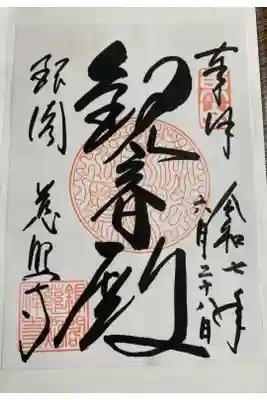 奉拝
令和七年
六月二十八日
観音殿
銀閣 慈照寺